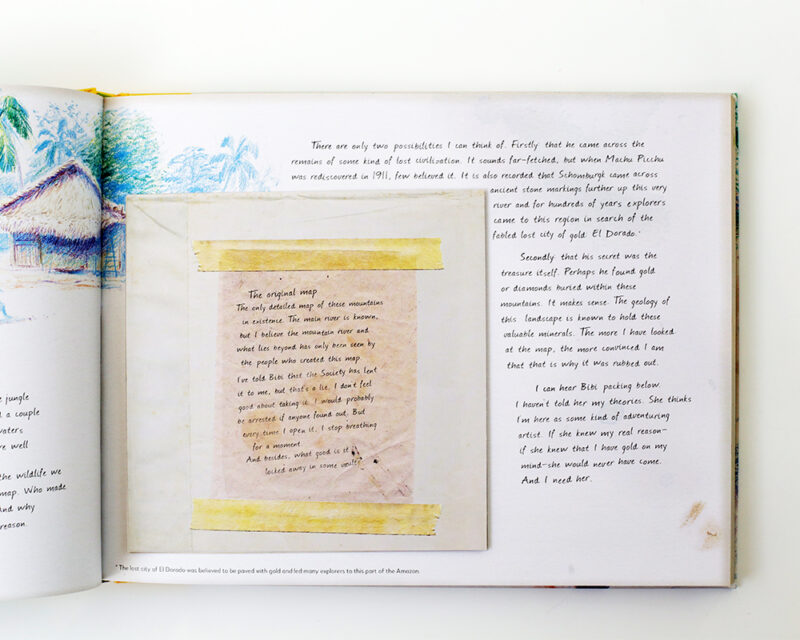 There are only two possibilities I can think of. Firstly that he came across the
remains of some kind of lost civilization. It sounds far-fetched, but when Machu Picchu
was rediscovered in 1911, few believed it. It is also recorded that Schomburgk came across
ancient stone markings further up this very
river and for hundreds of years explorers
came to this region in search of the
fabled lost city of gold El Dorado.*
Secondly that his secret was the
treasure itself. Perhaps he found gold
or diamonds buried within these
mountains. It makes sense. The geology of
this landscape is known to hold these
valuable minerals. The more I have looked
at the map, the more convinced I am
that that is why it was rubbed out.
I can hear Bibi packing below.
I haven't told her my theories. She thinks
I'm here as some kind of adventuring
artist. If she knew my real reason—
if she knew that I have gold on my
mind—she would never have come.
And I need her.
The original map
The only detailed map of these mountains
in existence. The main river is known,
but I believe the mountain river and
what lies beyond has only been seen by
the people who created this map.
I've told Bibi that the Society has lent
it to me, but that's a lie. I don't feel
good about taking it. I would probably
be arrested if anyone found out. But
every time I open it, I stop breathing
for a moment.
And besides, what good is it
locked away in some vault?
* The lost city of El Dorado was believed to be paved with gold and led many explorers to this part of the Amazon.
jungle
a couple
waters
re well
the wildlife we
map. Who made
And why
reason.